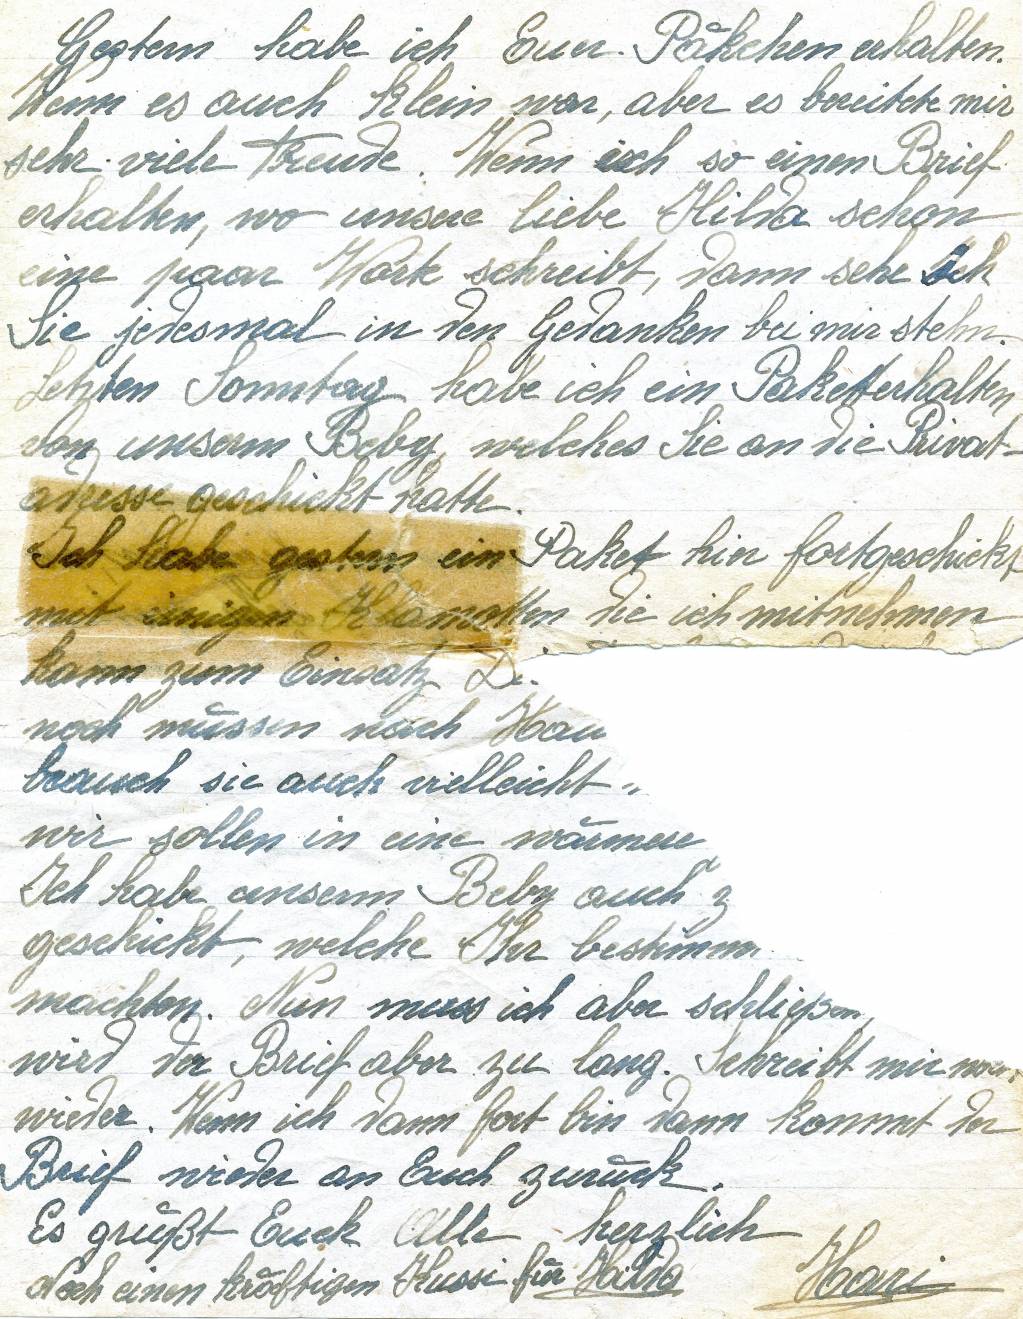 Gestern habe ich Euer Päkchen erhalten.
Wenn es auch klein war, aber es bereitete mir
sehr viele Freude. Wenn ich so einen Brief
erhalten, wo unsere liebe Hilda schon
eine paar Worte schreibt, dann sehe ich
Sie jedesmal in den Gedanken bei mir stehn.
Letzten Sonntag habe ich ein Paket erhalten
von unserm Beby, welches Sie an die Privat-
adresse geschickt hatte.
Ich habe gestern ein Paket hier fortgeschickt
mit einigen Klamotten die ich mitnehmen
kann zum Einsatz
noch müssen nach Hau
brauch sie auch vielleicht
wir sollen in eine wärmere
Ich habe unserm Beby auch
geschickt, welche Ihr bestimm
machten. Nun muss ich aber schließen,
wird der Brief aber zu lang. Schreibt mir
wieder. Wenn ich dann fort bin dann kommt der
Brief wieder an Euch zurück.
Es grüßt Euch Alle herzlich
Noch einen kräftigen Kussi für Hilda Hari